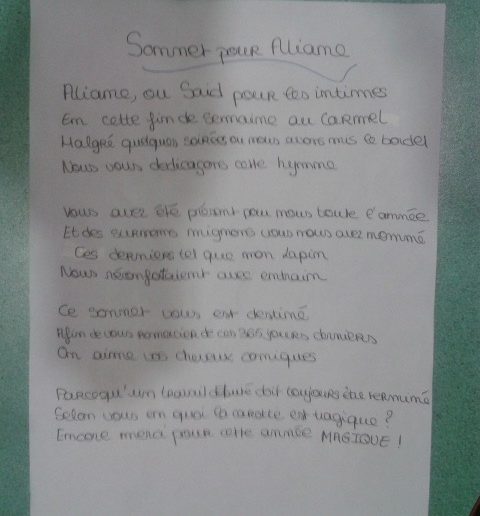 Sonnet pour Aliame
Aliame, ou Said pour les intimes
En cette fin de semaine au Carmel
Malgré quelques soirées ou nous avons mis le bordel
Nous vous dedicaçons cette hymne
Vous avez été présent pour nous toute l'année
Et des surnoms mignons vous nous avez nommé
Ces derniers tel que mon lapin
Nous réconfortaient avec entrain
Ce sonnet vous est destiné
Afin de vous remercier de ces 365 jours derniers
On aime vos cheveux comiques
Parcequ'un travail débuté doit toujours être terminé
Selon vous en quoi la carotte est tragique ?
Encore merci pour cette année MAGIQUE !